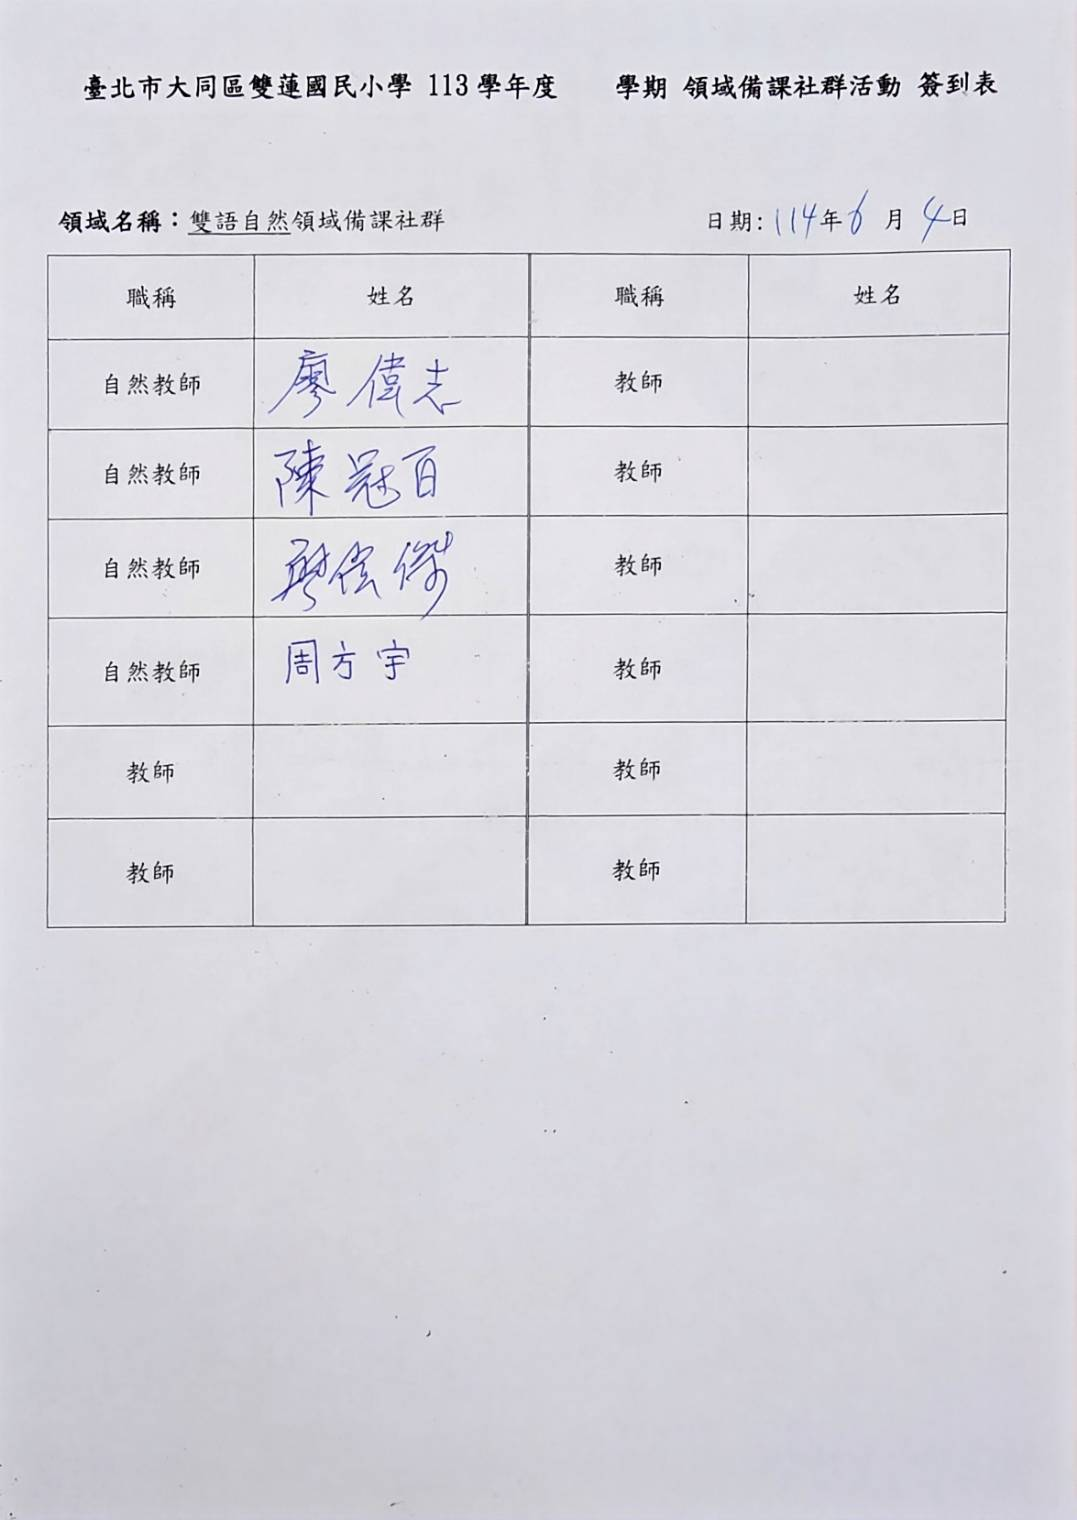 臺北市大同區雙蓮國民小學 113 學年度 學期 領域備課社群活動 簽到表
領域名稱：雙語自然領域備課社群 日期: 114年 6 月 4日
職稱 姓名 職稱 姓名
自然教師 廖偉志 教師
自然教師 陳冠百 教師
自然教師 傑 教師
自然教師 周方宇 教師
教師 教師
教師 教師